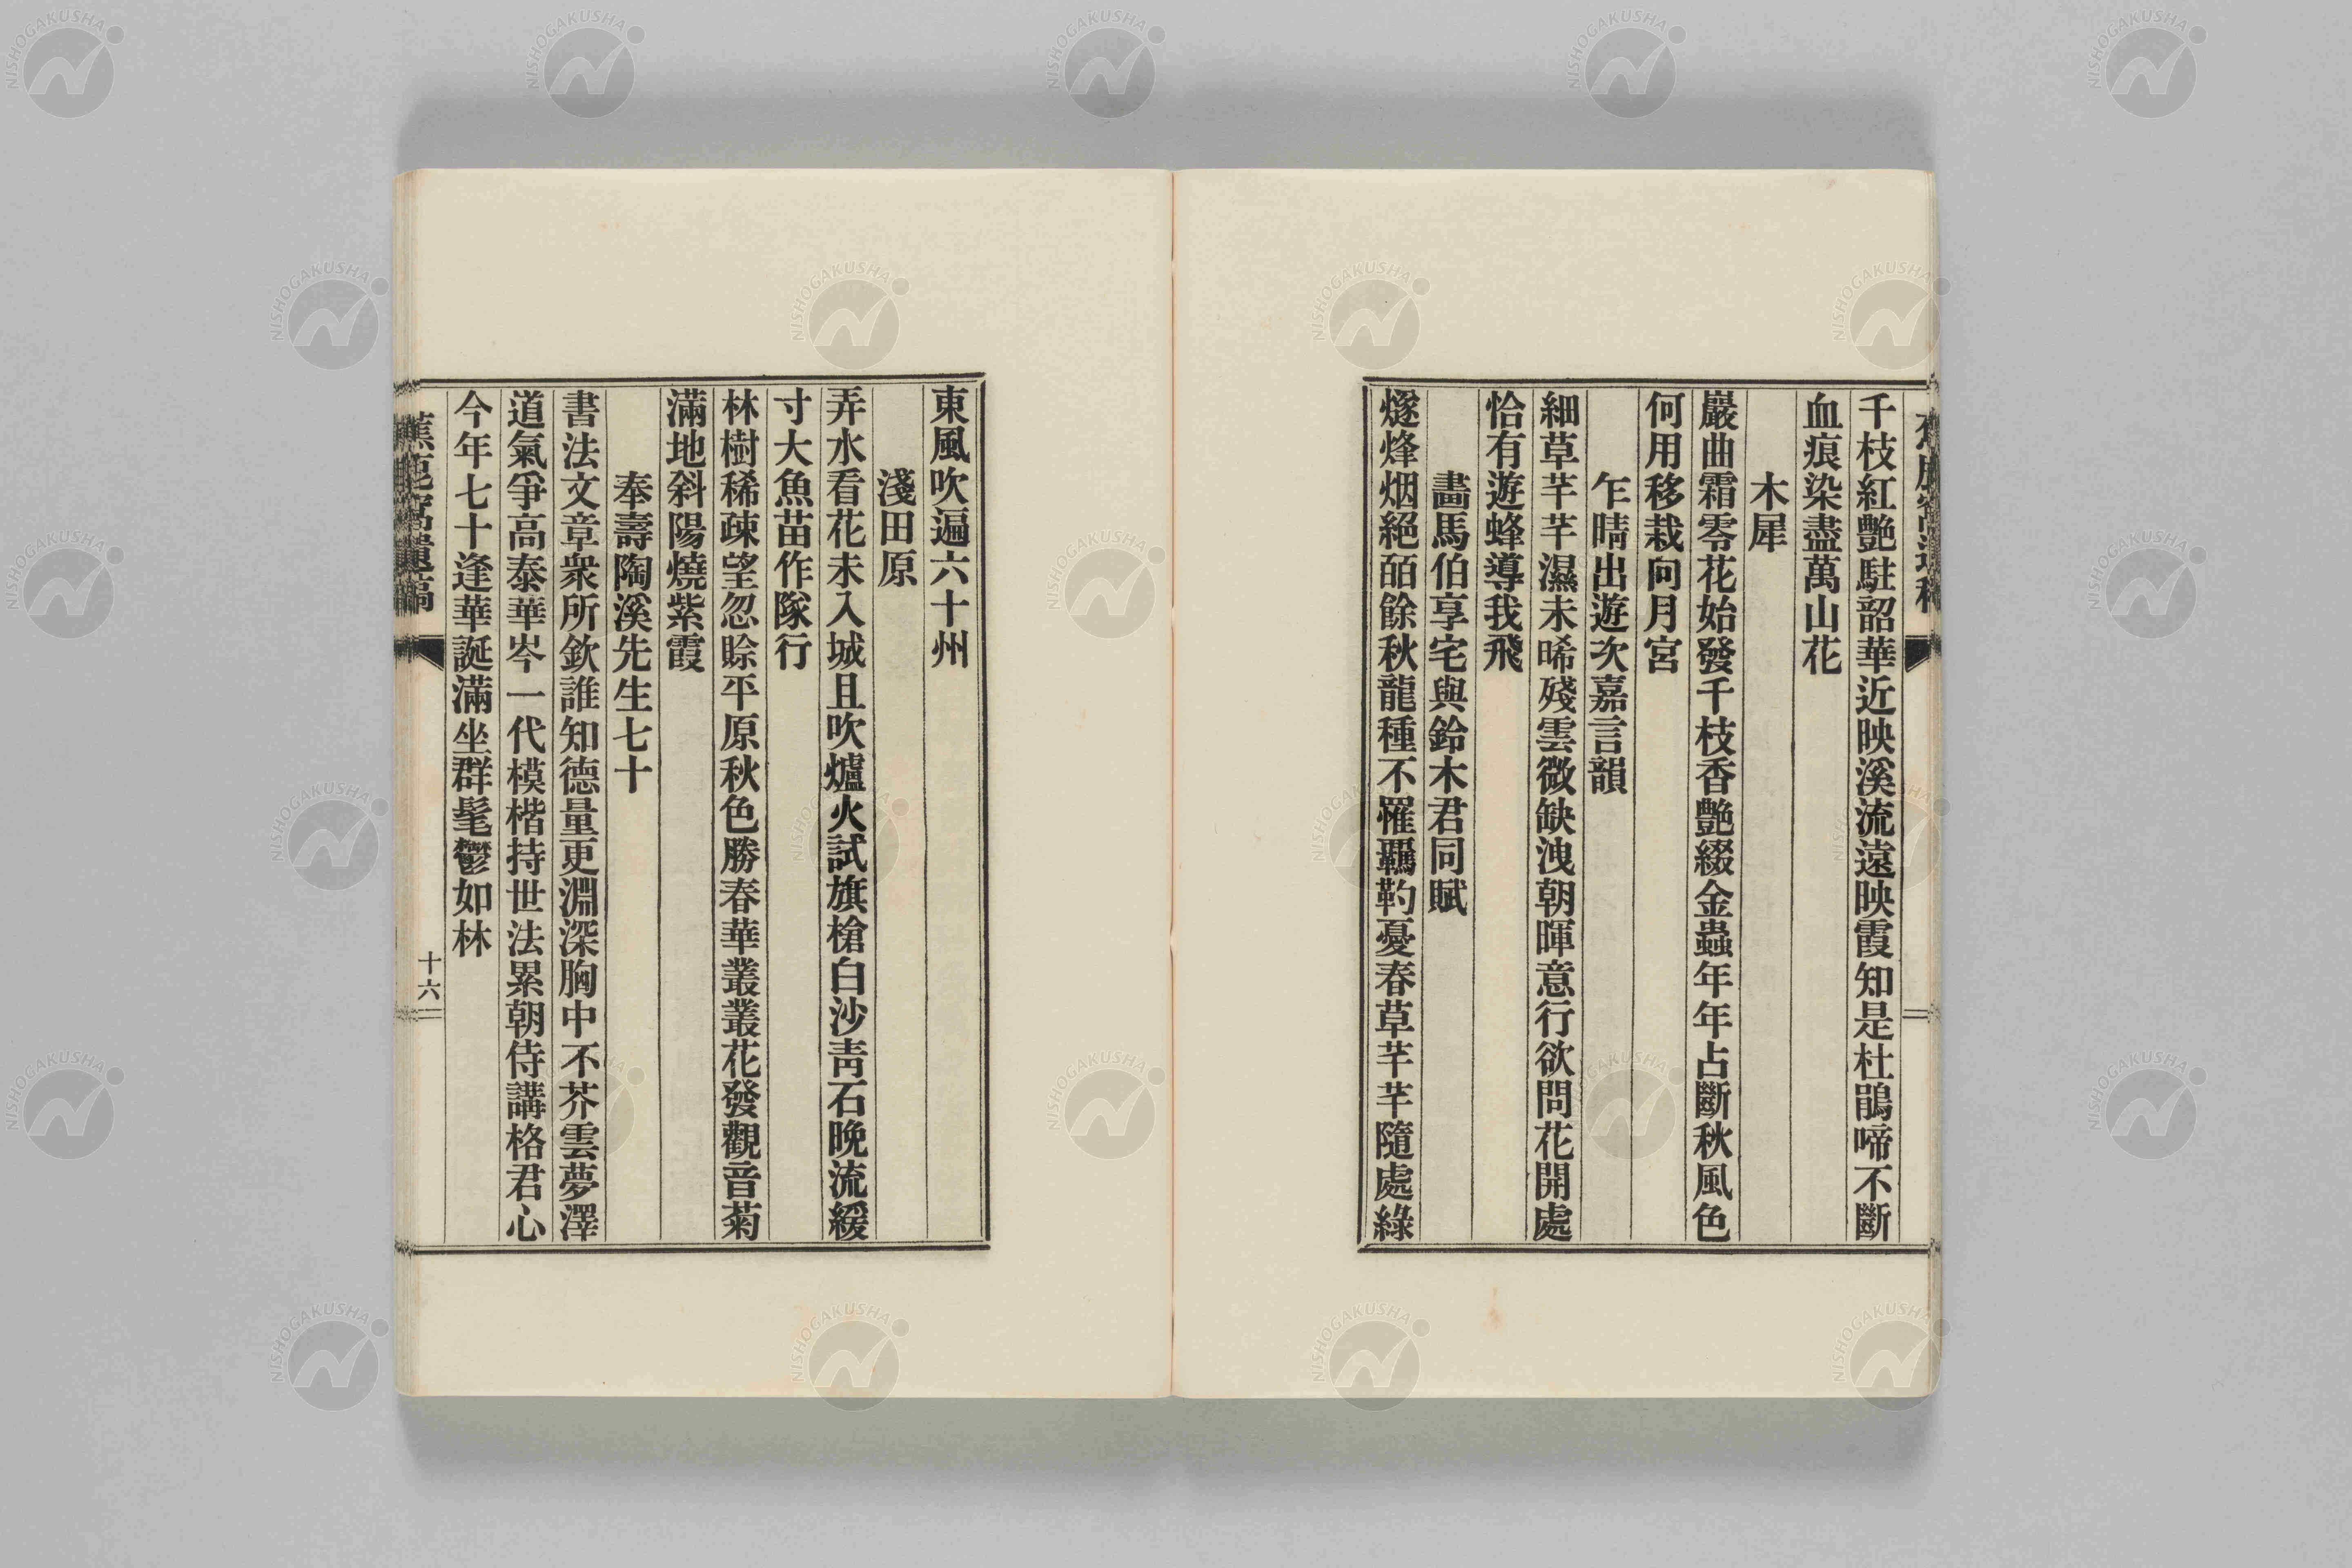 千枝紅艷駐韶華近映溪流遠映霞知是杜鵑啼不斷
血痕染盡萬山花
木犀
巖曲霜零花始發千枝香艷綴金蟲年年占斷秋風色
何用移栽向月宮
乍晴出遊次嘉言韻
細草芊芊濕未晞殘雲微缺洩朝暉意行欲問花開處
恰有遊蜂導我飛
畵馬伯享宅與鈴木君同賦
燧烽烟絕皕餘秋龍種不罹羈靮憂春草芊芊隨處綠
東風吹遍六十州
淺田原
弄水看花未入城且吹爐火試旗槍白沙靑石晚流緩
寸大魚苗作隊行
林樹稀疎望忽賒平原秋色勝春華叢叢花發觀音菊
滿地斜陽燒紫霞
奉壽陶溪先生七十
書法文章衆所欽誰知德量更淵深胸中不芥雲夢澤
道氣爭高泰華岑一代模楷持世法累朝侍講格君心
今年七十逢華誕滿坐群髦鬱如林
十六
NISHOGAKUSHA